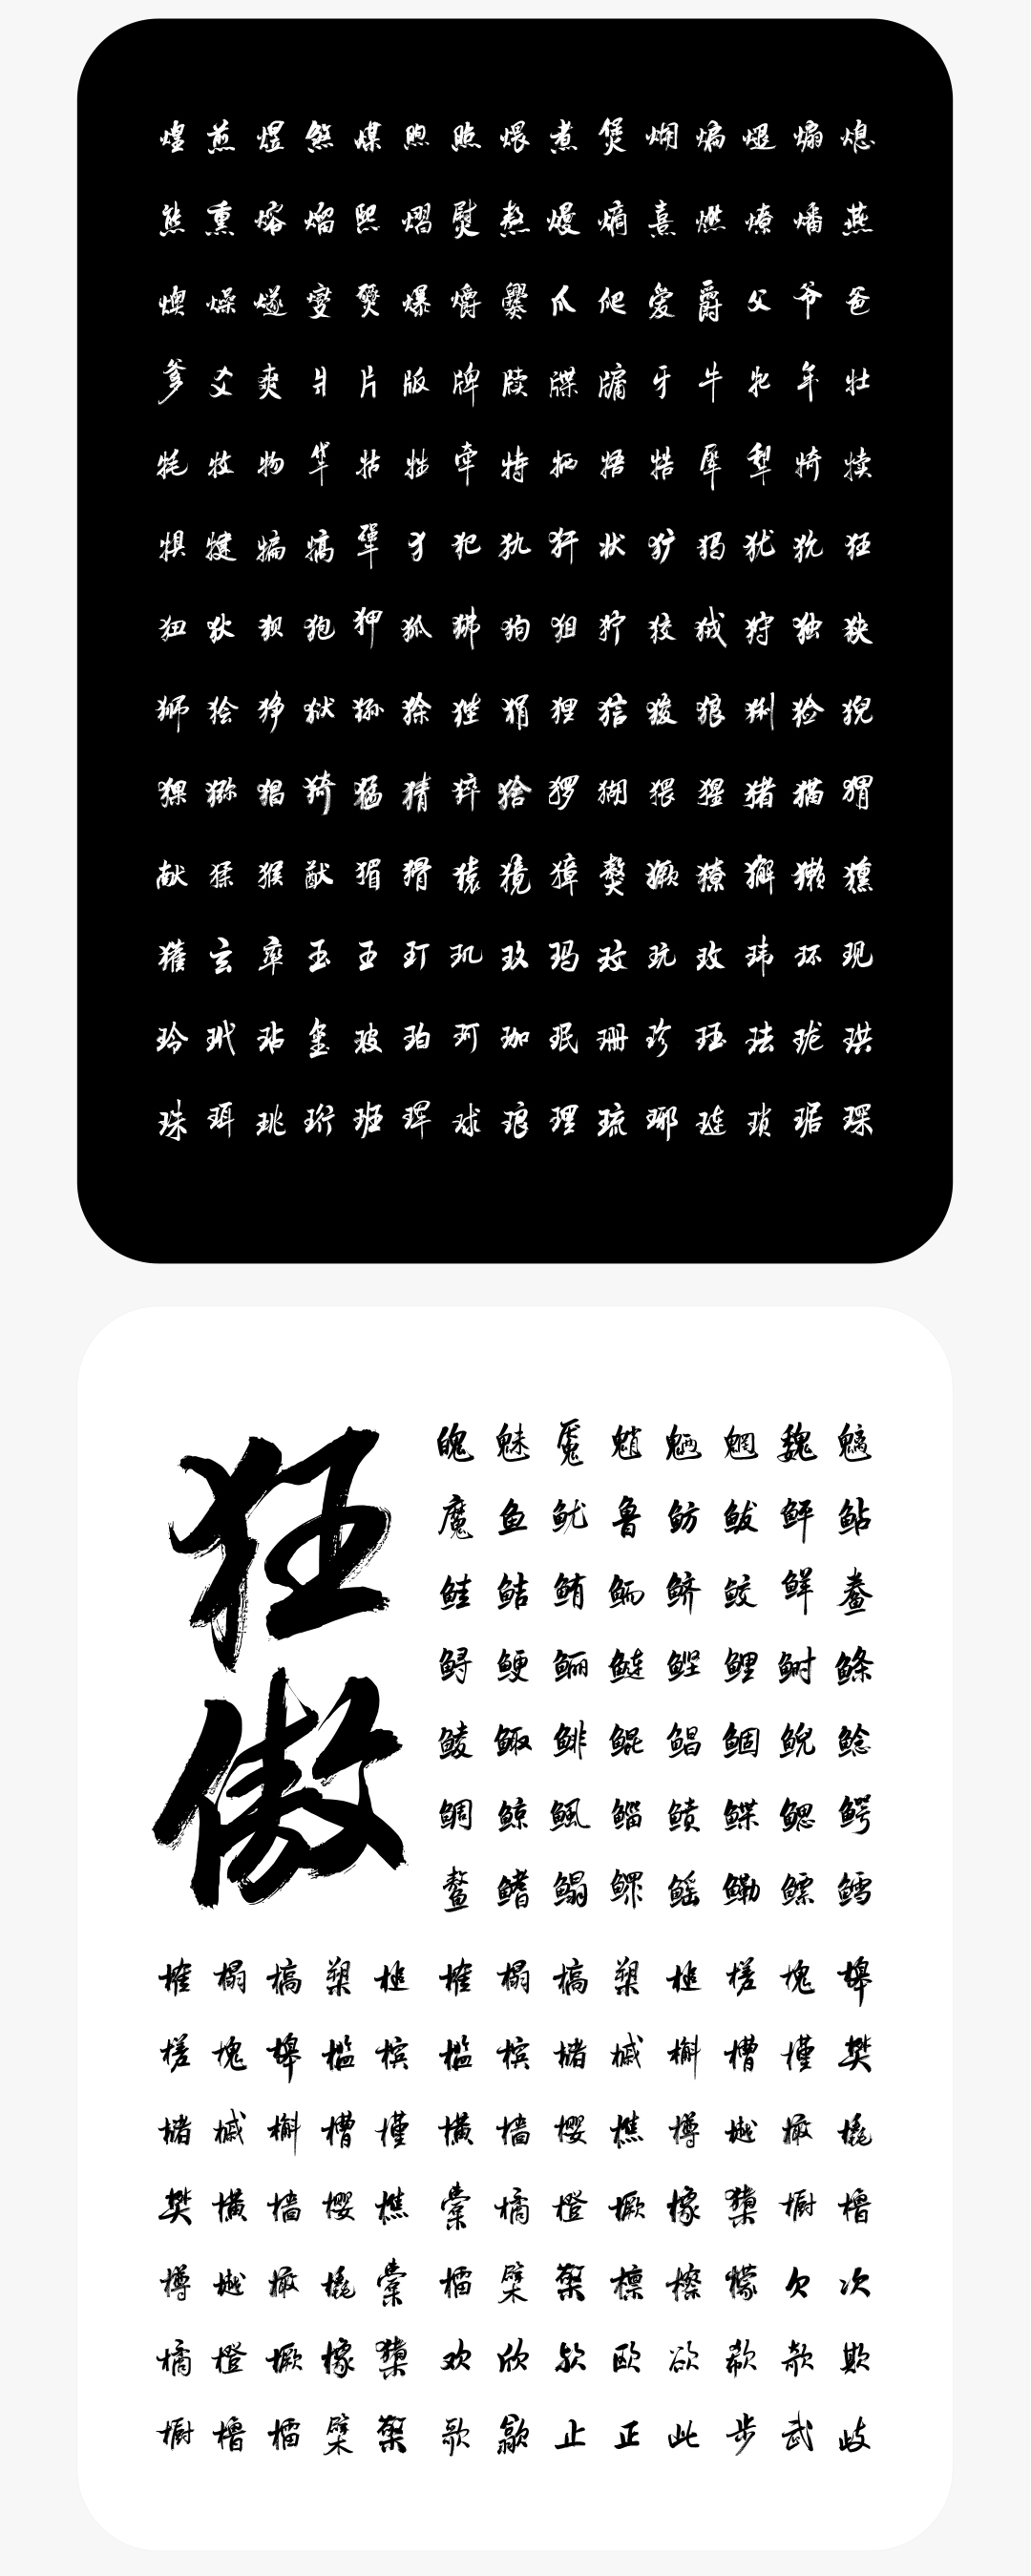 煌煎煜煞煤煦照煨煮煲焖煸煺煽熄
熊熏熔熘熙熠熨熬熳熵熹燃燎燔燕
燠燥燧燮爕爆爝爨爪爬爱爵父爷爸
爹爻爽爿片版牌牍牒牖牙牛牝牟牡
牦牧物牮牯牲牵特牺牾牿犀犁犄犊
犋犍犏犒犟犭犯犰犴状犷犸犹犺狂
狃狄狈狍狎狐狒狗狙狞狡狨狩独狭
狮狯狰狱狲狳狴狷狸狺狻狼猁猃猊
猓猕猖猗猛猜猝猞猡猢猥猩猪猫猬
献猱猴猷猸猾猿獍獐獒獗獠獬獭獯
獾玄率玉王玎玑玖玛玟玩玫玮环现
玲玳玷玺玻珀珂珈珉珊珍珏珐珑珙
珠珥珧珩班珲球琅理琉琊琏琐琚琛
狂傲
魄魅魇魈魉魍魏魑
魔鱼鱿鲁鲂鲅鲆鲇
鲑鲒鲔鲕鲚鲛鲜鲞
鲟鲠鲡鲢鲣鲤鲥鲦
鲮鲰鲱鲲鲳鲴鲵鲶
鲷鲸鲺鲻鲼鲽鳃鳄
鳌鳍鳎鳏鳐鳓鳔鳕
榷榻槁槊槌榷榻槁槊槌槎槐槔
槎槐槔槛槟槛槟槠槭槲槽槿樊
槠槭槲槽槿横樯樱樵樽樾橄橇
樊横樯樱樵橐橘橙橛橡橥橱橹
樽樾橄橇橐檑檗檠檩檫檬欠次
橘橙橛橡橥欢欣欤欧欲欷欹欺
橱橹檑檗檠歌歙止正此步武歧